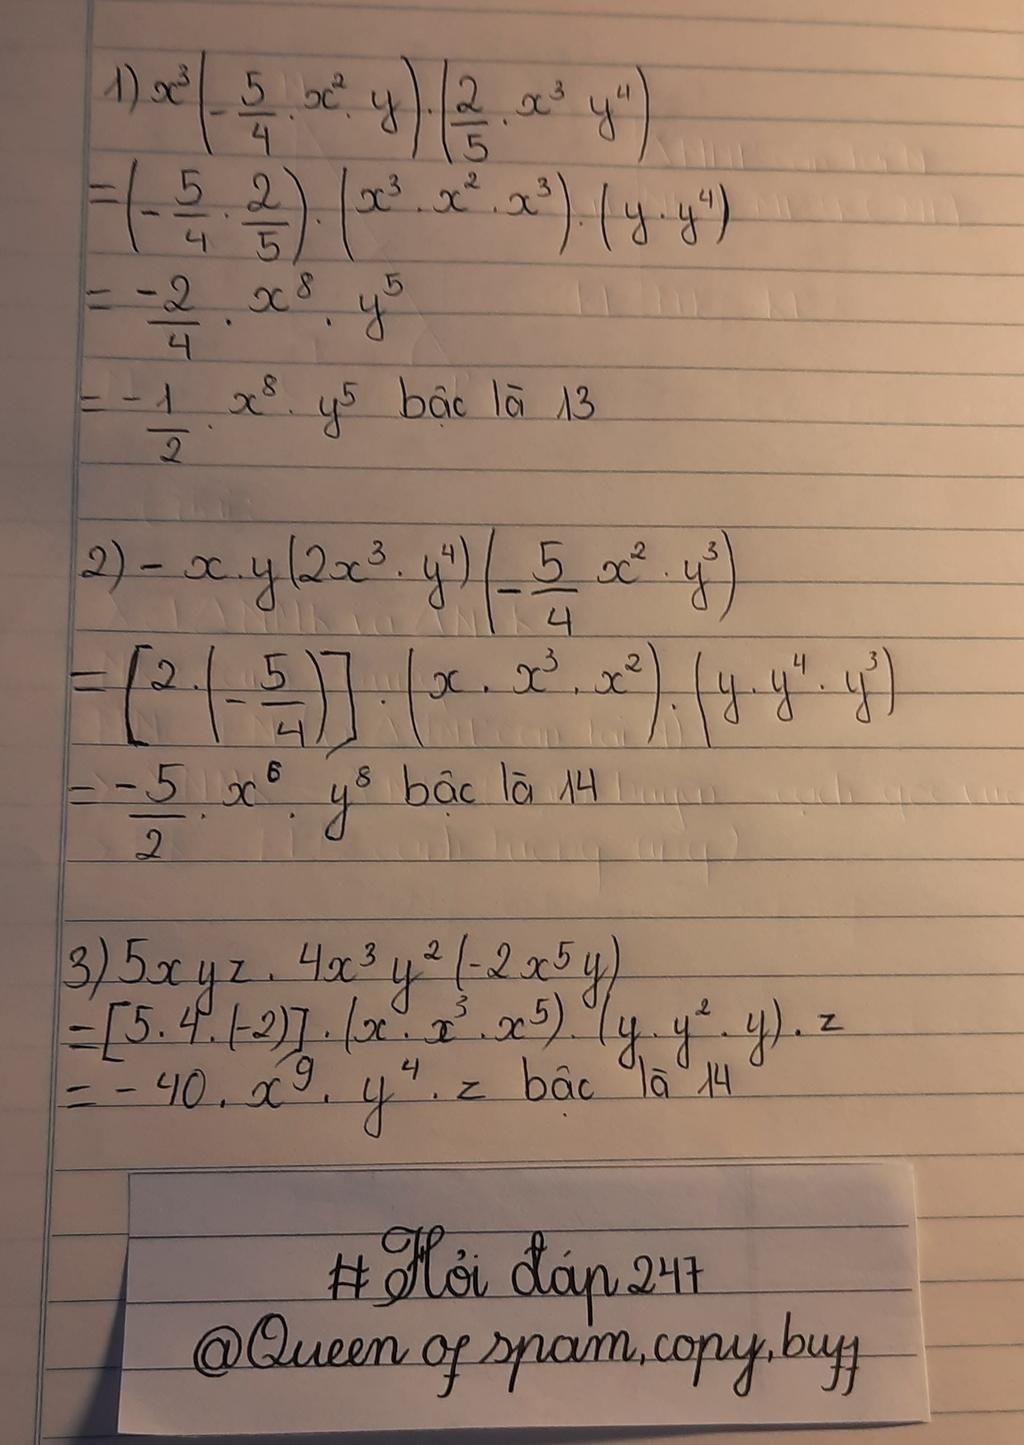 1) x³(-5/4 . x² . y) . (2/5 . x³ y⁴)
= (-5/4 . 2/5) . (x³ . x² . x³) . (y . y⁴)
= -2/4 . x⁸ . y⁵
= -1/2 . x⁸ . y⁵ bậc là 13
2) - x.y(2x³ . y⁴)(-5/4 x² . y³)
= [2.(-5/4)] . (x . x³ . x²) . (y . y⁴ . y³)
= -5/2 . x⁶ . y⁸ bậc là 14
3) 5xyz . 4x³y²(-2x⁵y)
= [5.4.(-2)] . (x . x³ . x⁵) . (y . y² . y) . z
= -40 . x⁹ . y⁴ . z bậc là 14
#Hỏi đáp 247
@Queen of spam, copy, buff